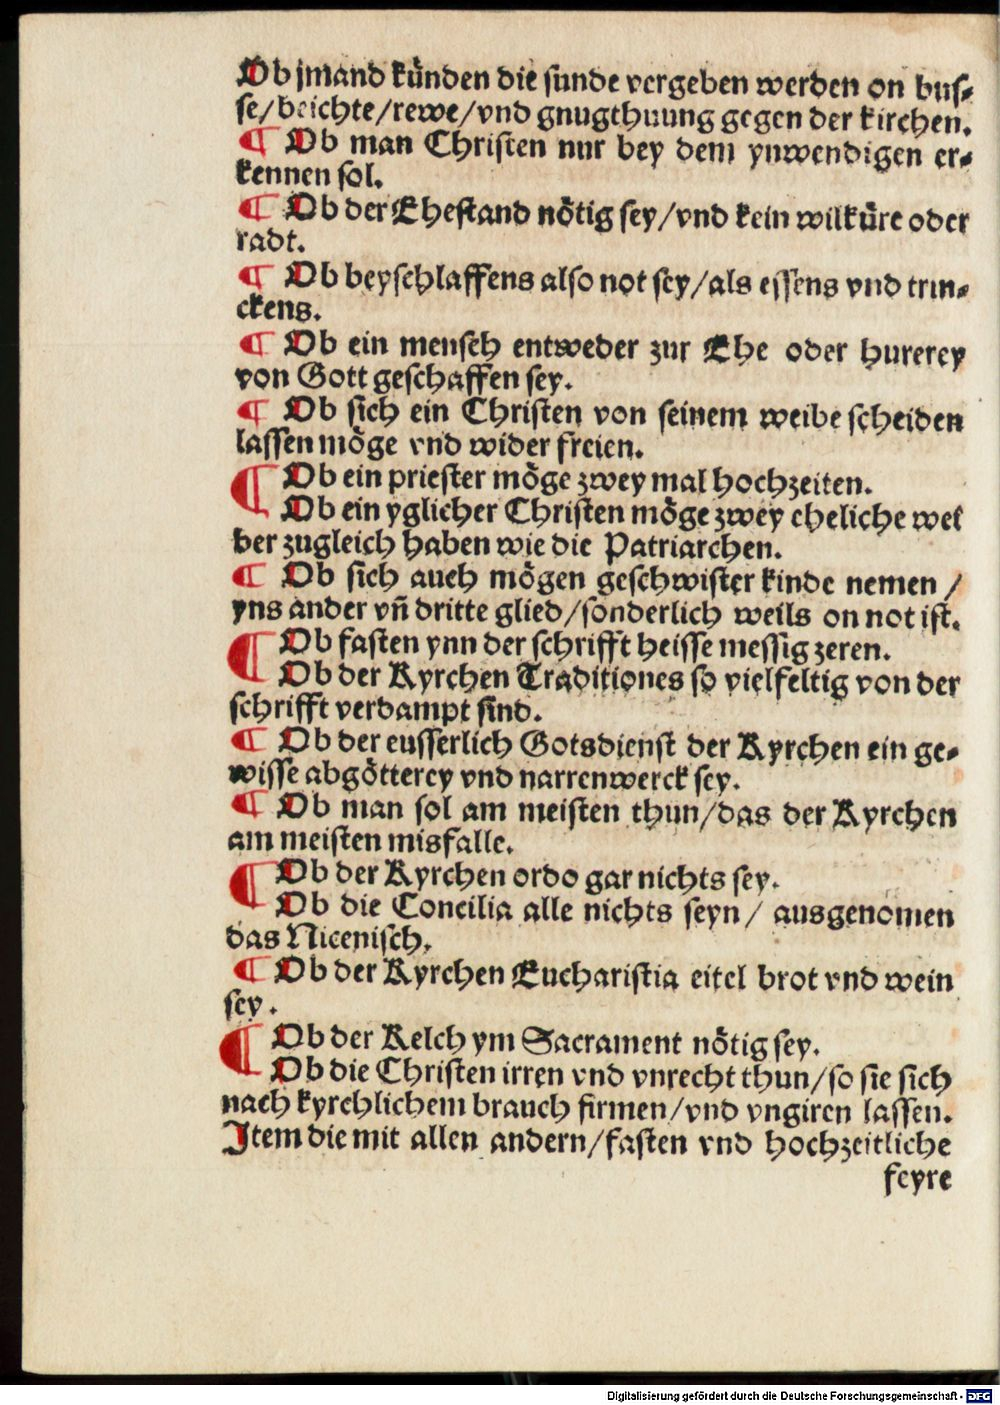 Ob jmand künden die sunde vergeben werden on bus-
se/beichte/rewe/vnd gnugthuung gegen der kirchen.
¶ Ob man Christen nur bey dem ynwendigen er-
kennen sol.
¶ Ob der Ehestand nötig sey/vnd kein wilküre oder
radt.
¶ Ob beyschlaffens also not sey/als essens vnd trin-
ckens.
¶ Ob ein mensch entweder zur Ehe oder hurerey
von Gott geschaffen sey.
¶ Ob sich ein Christen von seinem weibe scheiden
lassen möge vnd wider freien.
¶ Ob ein priester möge zwey mal hochzeiten.
Ob ein yglicher Christen möge zwey eheliche wei
ber zugleich haben wie die Patriarchen.
¶ Ob sich auch mögen geschwister kinde nemen /
yns ander vñ dritte glied/sonderlich weils on not ist.
¶ Ob fasten ynn der schrifft heisse messig zeren.
Ob der Kyrchen Traditiones so vielfeltig von der
schrifft verdampt sind.
¶ Ob der eusserlich Gotsdienst der Kyrchen ein ge-
wisse abgötterey vnd narrenwerck sey.
¶ Ob man sol am meisten thun/das der Kyrchen
am meisten misfalle.
¶ Ob der Kyrchen ordo gar nichts sey.
Ob die Concilia alle nichts seyn/ ausgenomen
das Nicenisch.
¶ Ob der Kyrchen Eucharistia eitel brot vnd wein
sey.
¶ Ob der Kelch ym Sacrament nötig sey.
Ob die Christen irren vnd vnrecht thun/so sie sich
nach kyrchlichem brauch firmen/vnd vngiren lassen.
Item die mit allen andern/fasten vnd hochzeitliche
feyre
Digitalisierung gefördert durch die Deutsche Forschungsgemeinschaft - DFG